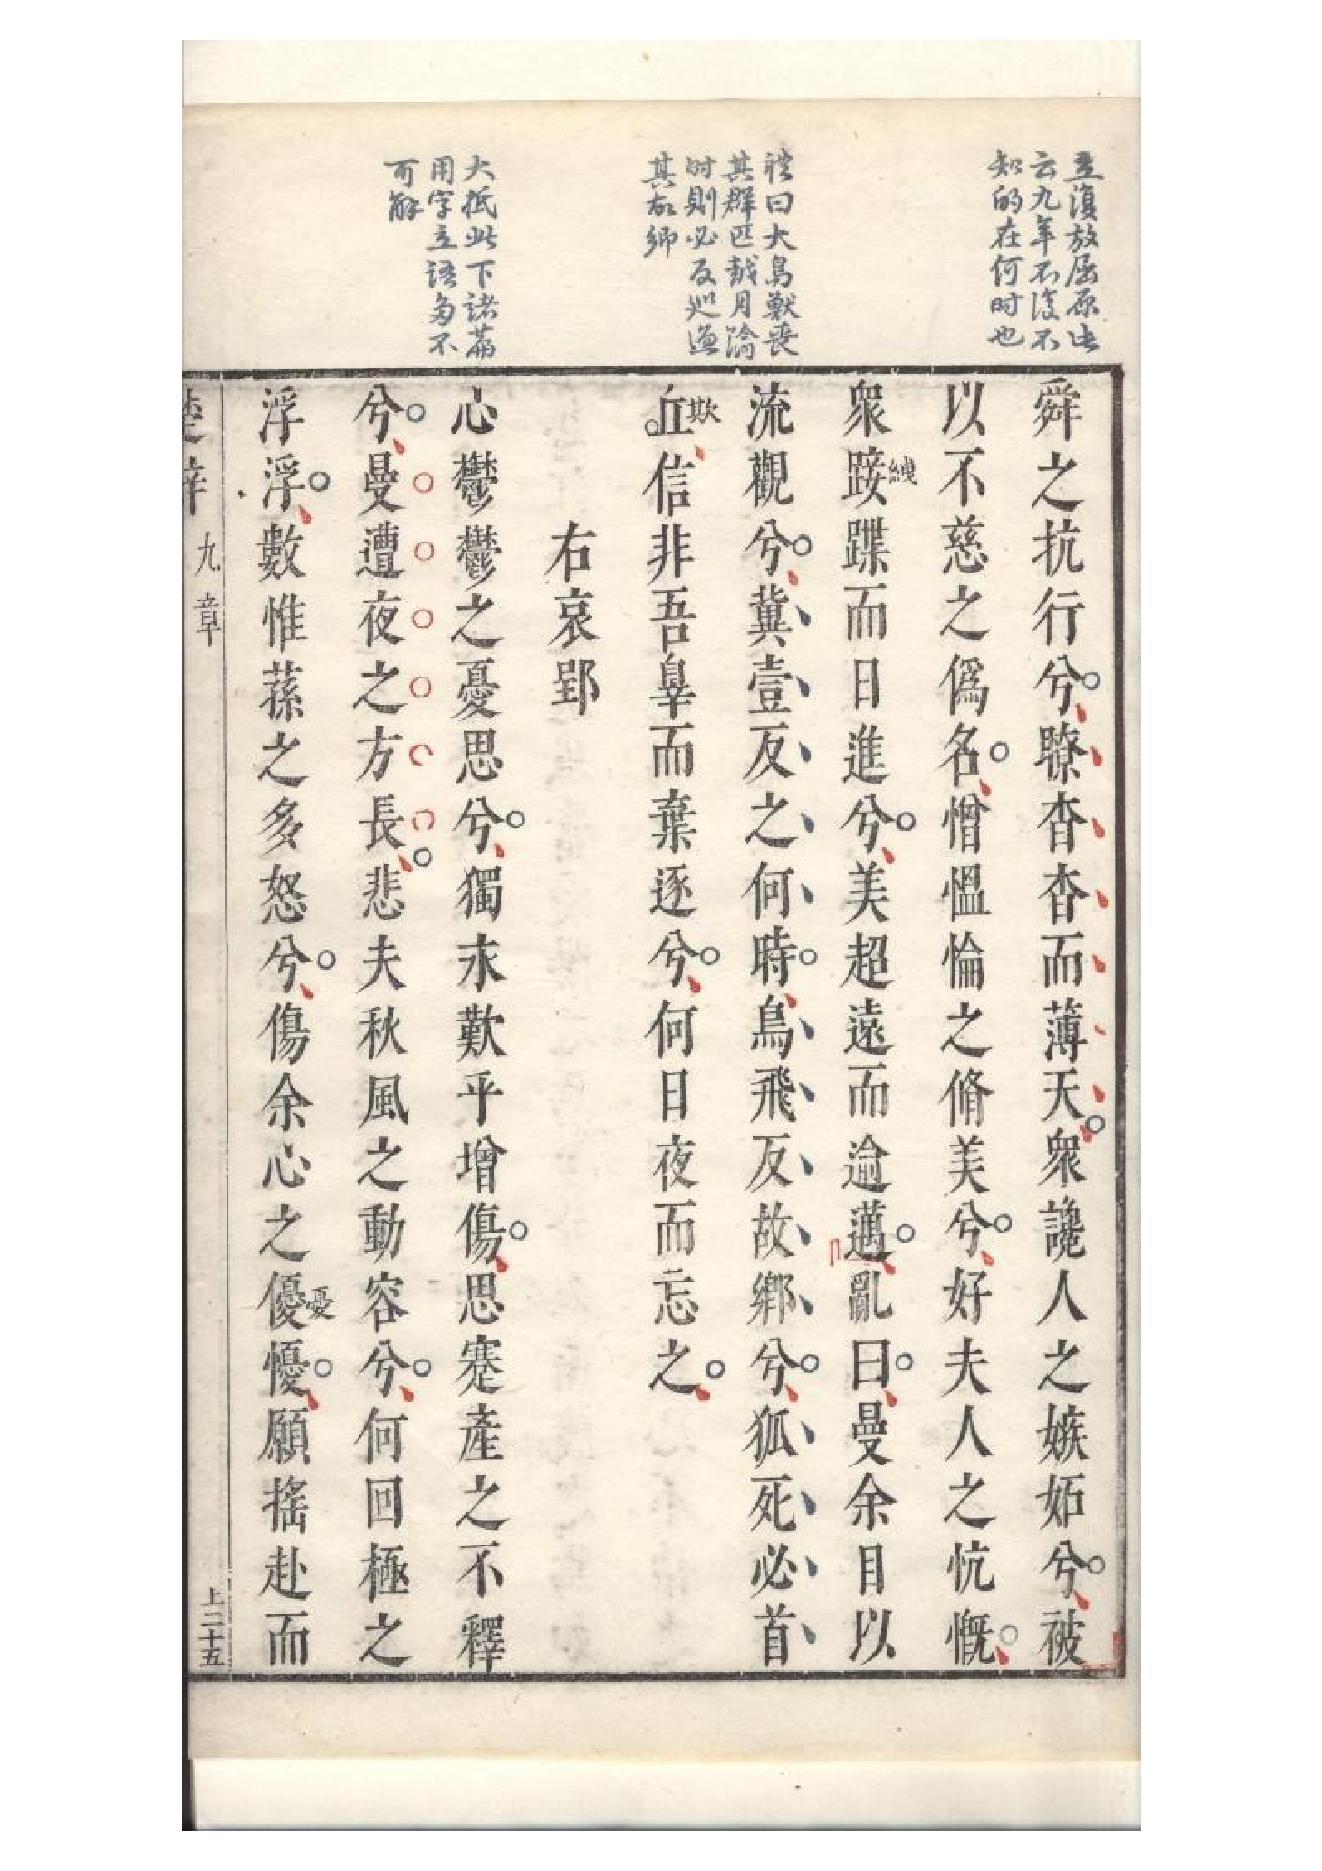 立復放屈原注
云九年不復不
知的在何時也
禮曰大鳥獸喪
其群匹越月踰
時則必反巡過
其故鄉
大抵此下諸篇
用字立語多不
可解
舜之抗行兮瞭杳杳而薄天衆讒人之嫉妬兮被
以不慈之僞名憎慍惀之脩美兮好夫人之忼慨
衆踥蹀而日進兮美超遠而逾邁亂曰曼余目以
緁
流觀兮冀壹反之何時鳥飛反故鄉兮狐死必首
丘信非吾辠而棄逐兮何日夜而忘之
欺
右哀郢
心鬱鬱之憂思兮獨永歎乎增傷思蹇產之不釋
兮曼遭夜之方長悲夫秋風之動容兮何回極之
浮浮數惟蓀之多怒兮傷余心之優懮願搖赴而
憂
楚辭 九章 上二十五